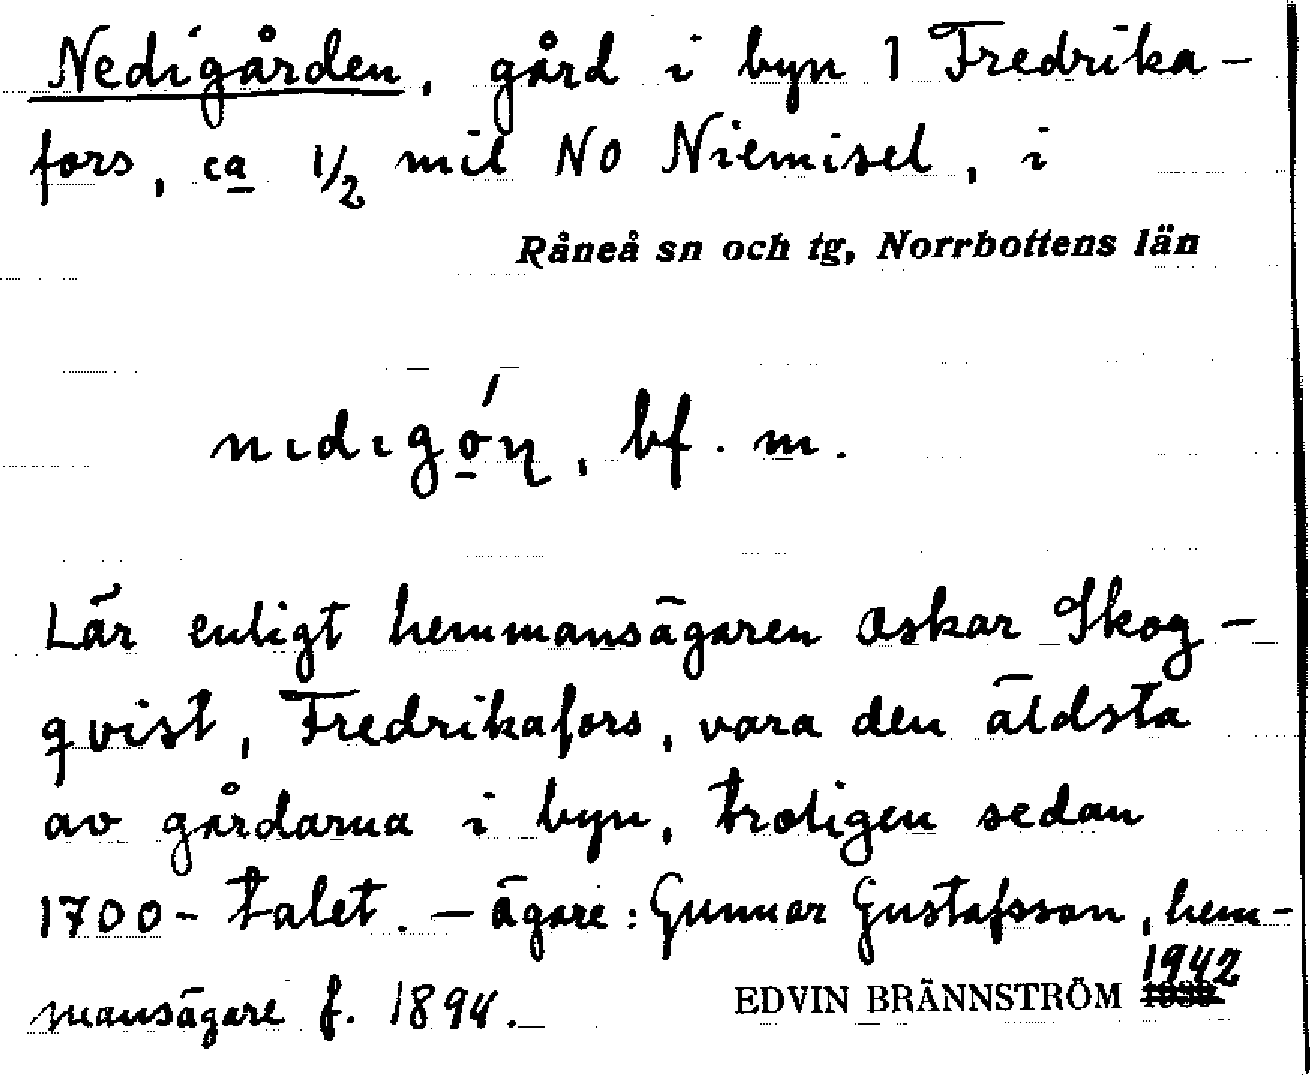 Nedigården, gård i byn 1 Fredrika-
fors, ca 1/2 mil NO Niemisel, i
Råneå sn och tg, Norrbottens län
nıdıgǫ́ɳ, bf. m.
Lär enligt hemmansägaren Oskar Skog-
qvist, Fredrikafors, vara den äldsta
av gårdarna i byn, troligen sedan
1700-talet. – ägare: Gunnar Gustafsson, hem-
mansägare f. 1894.
EDVIN BRÄNNSTRÖM 1942